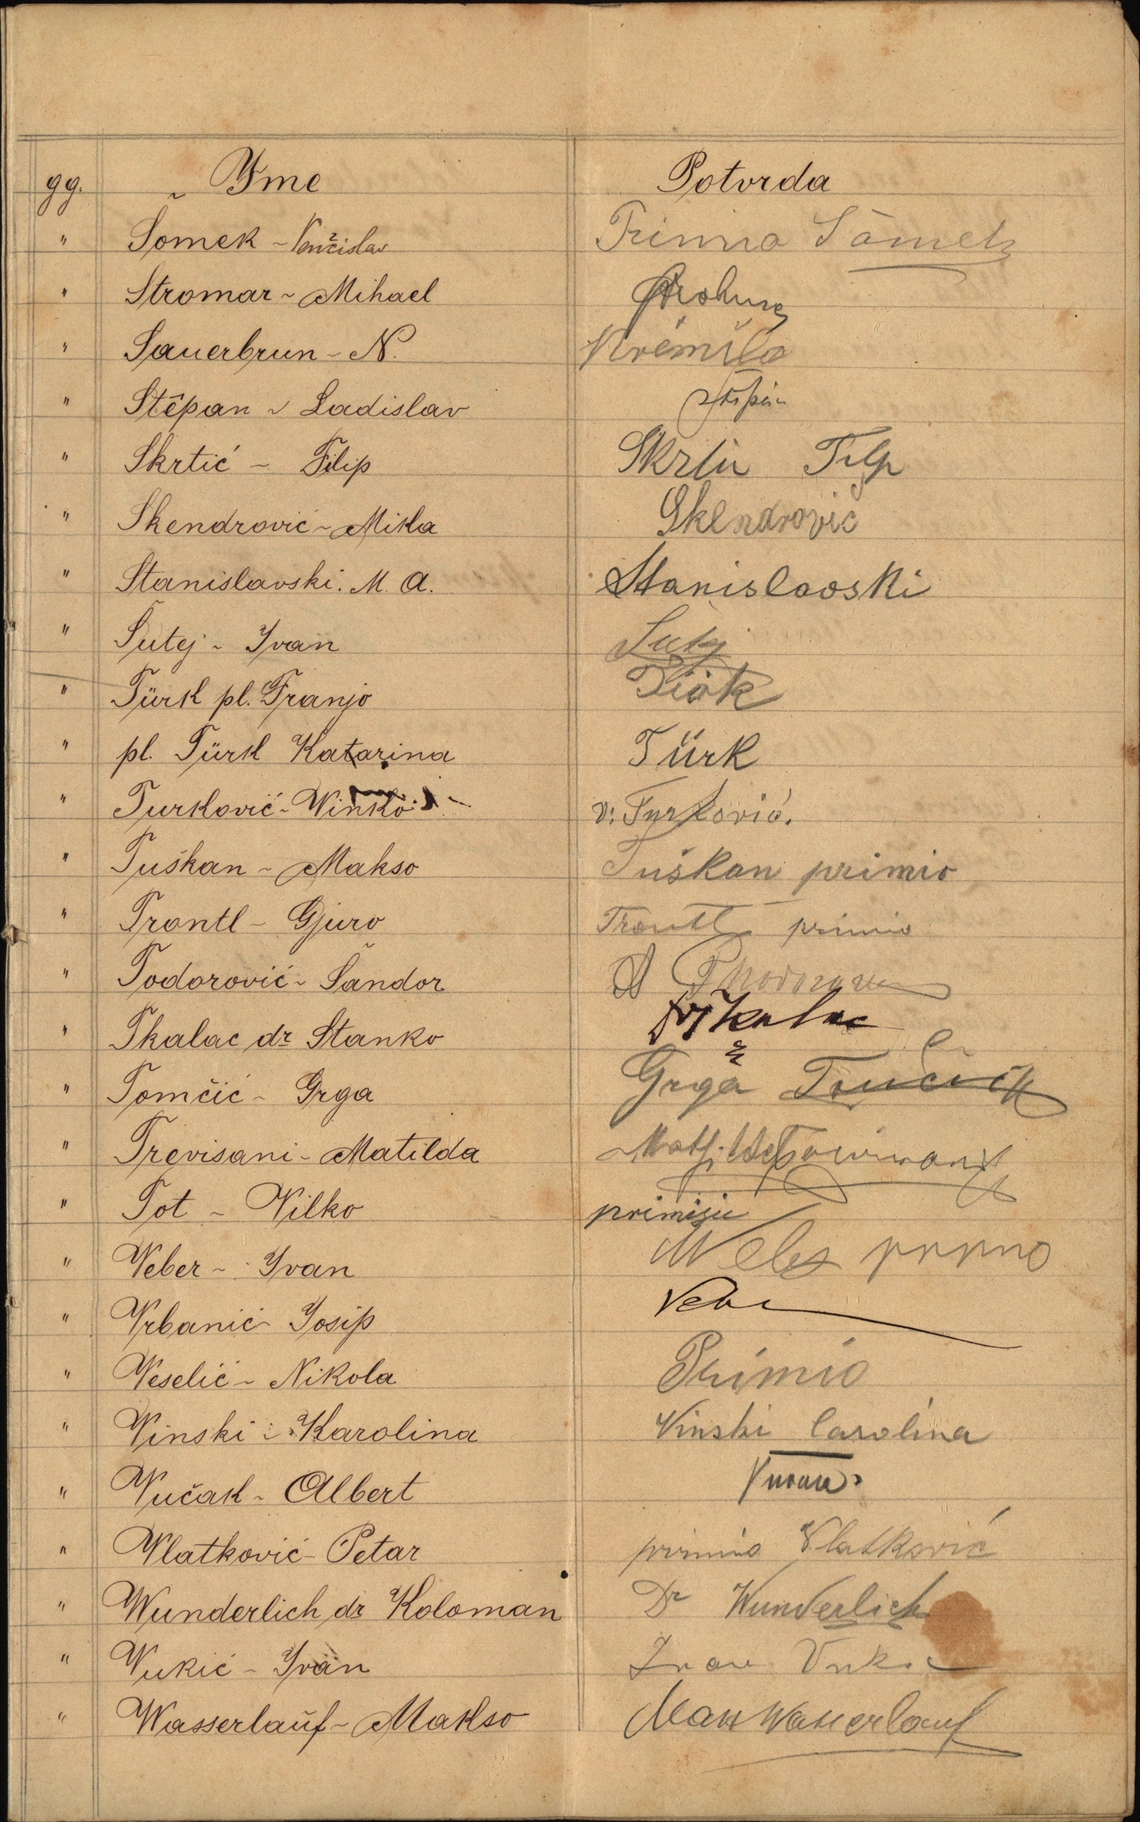 gg. Ime Potvrda
" Šomek - Venčislav Primio
" Stromar - Mihael
" Sauerbrun - N.
" Stêpan - Ladislav
" Skrtić - Filip
" Skendrović - Mika Skendrović
" Stanislavski. M. A. Stanislavski
" Šutej - Ivan Šutej
" Türk pl. Franjo
" pl. Türk Katarina Türk
" Turković - Winko V. Turković.
" Tuškan - Makso Tuškan primio
" Trontl - Gjuro Trontl primio
" Todorović - Šandor
" Tkalac dr Stanko Dr Tkalac
" Tomčić - Grga Grga
" Trevisani - Matilda
" Tot - Vilko
" Veber - Ivan
" Vrbanić Josip
" Veselić - Nikola Primio
" Vinski - Karolina Vinski Carolina
" Vučak - Albert
" Vlatković - Petar primio Vlatković
" Wunderlich dr Koloman Dr Wunderlich
" Vukić - Ivan Ivan Vukić
" Wasserlauf - Makso Max Wasserlauf